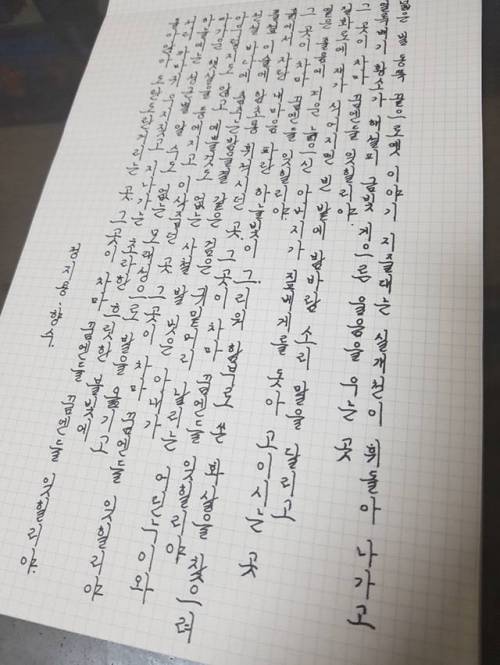 넓은 벌 동쪽 끝으로 옛 이야기 지줄대는 실개천이 휘돌아 나가고
얼룩백이 황소가 해설피 금빛 게으른 울음을 우는 곳
그 곳이 차마 꿈엔들 잊힐리야.
질화로에 재가 식어지면 빈 밭에 밤바람 소리 말을 달리고
엷은 졸음에 겨운 늙으신 아버지가 짚베개를 돋아 고이시는 곳
그 곳이 차마 꿈엔들 잊힐리야.
흙에서 자란 내 마음 파란 하늘빛이 그리워 함부로 쏜 화살을 찾으려
풀섶 이슬에 함초롬 휘적시던 곳. 그 곳이 차마 꿈엔들 잊힐리야
전설 바다에 춤추는 밤물결 같은 검은 귀밑머리 날리는 어린 누이와
아무렇지도 않고 예쁠 것도 없는 사철 발 벗은 아내가
따가운 햇살을 등에 지고 이삭 줍던 곳 그 곳이 차마 꿈엔들 잊힐리야
하늘에는 성근 별 알 수도 없는 모래성으로 발을 옮기고
서리 까마귀 우지짖고 지나가는 초라한 지붕 흐릿한 불빛에
돌아앉아 도란도란거리는 곳 그 곳이 차마 꿈엔들 잊힐리야.
정지용·향수.